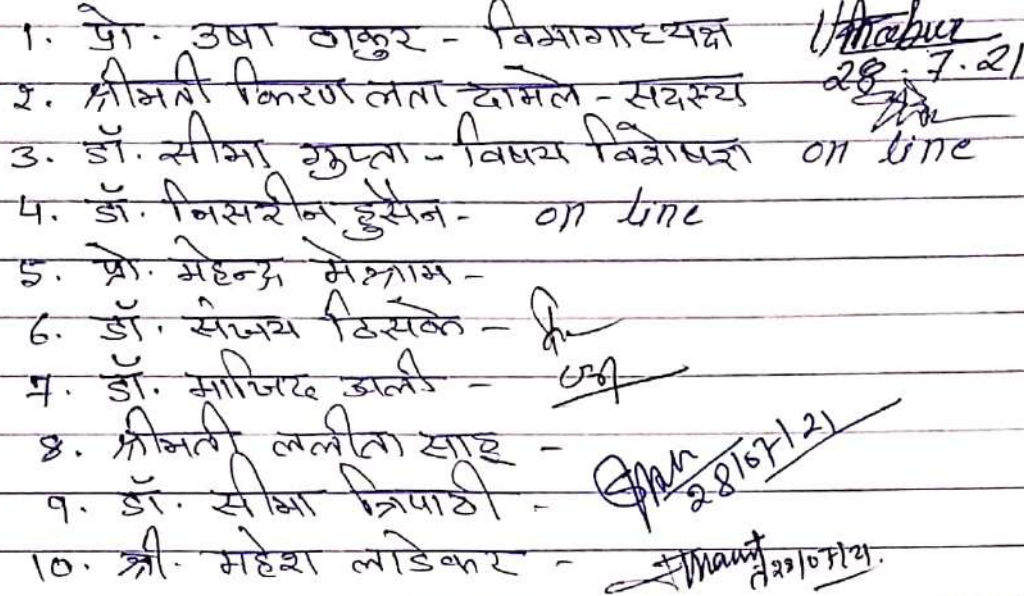 1. प्रो. उषा ठाकुर - विभागाध्यक्ष UThakur
28.7.21
2. श्रीमती किरण लता दामले - सदस्य
3. डॉ. सीमा गुप्ता - विषय विशेषज्ञ on line
4. डॉ. निसरीन हुसैन - on line
5. प्रो. महेन्द्र मेश्राम -
6. डॉ. संजय ठिसके -
7. डॉ. माजिद अली -
8. श्रीमती ललीता साहू -
28/07/21
9. डॉ. सीमा त्रिपाठी -
10. श्री. महेश लाडेकर - 28/07/21.